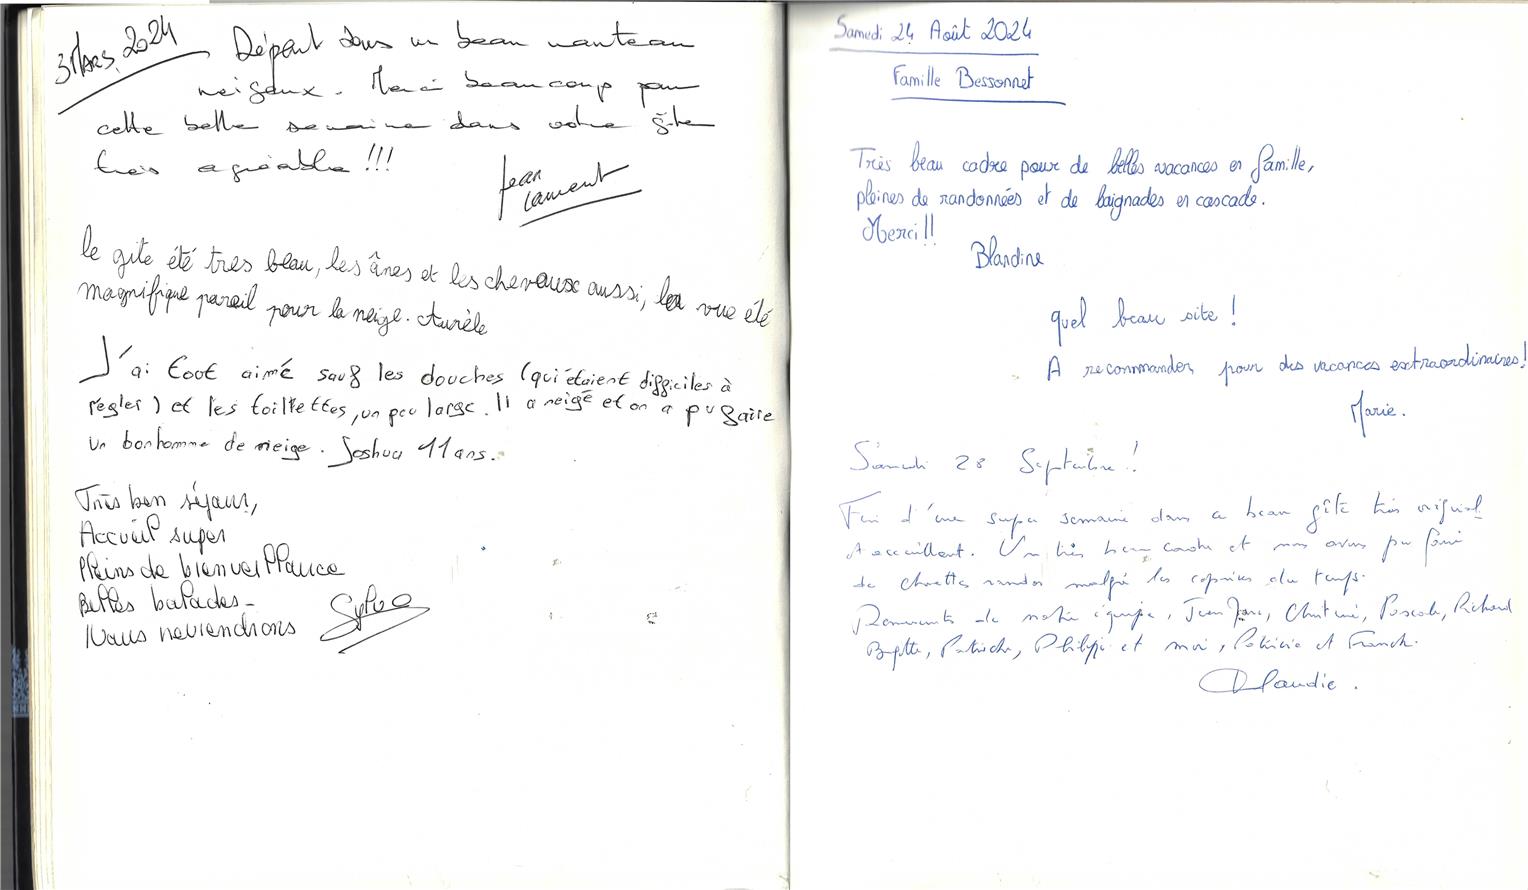 3 Mars 2024
Départ dans un beau manteau
neigeux. Merci beaucoup pour
cette belle semaine dans votre gîte
très agréable !!!
Jean
Laurent
le gite été tres beau, les ânes et les chevaux aussi, la vue été
magnifique pareil pour la neige. Aurèle
J'ai tout aimé sauf les douches (qui étaient difficiles à
régler) et les toillettes, un peu large. Il a neigé et on a pu faire
un bonhomme de neige. Joshua 11 ans.
Très bon séjour,
Accueil super
Pleins de bienveillance
Belles balades_
Nous reviendrons
Sylvie
Samedi 24 Août 2024
Famille Bessonnet
Très beau cadre pour de belles vacances en famille,
pleines de randonnées et de baignades en cascade.
Merci!!
Blandine
quel beau site !
A recommander pour des vacances extraordinaires!
Marie.
Samedi 28 Septembre !
Fin d'une super semaine dans ce beau gîte très original
et accueillant. Un très beau cadre et nous avons pu faire
de chouettes randos malgré les caprices du temps.
de notre équipe, Jean Marc, Christine, Pascale, Richard
Brigitte, Patrick, Philippe et moi, Patricia et Franck.
Claudie.